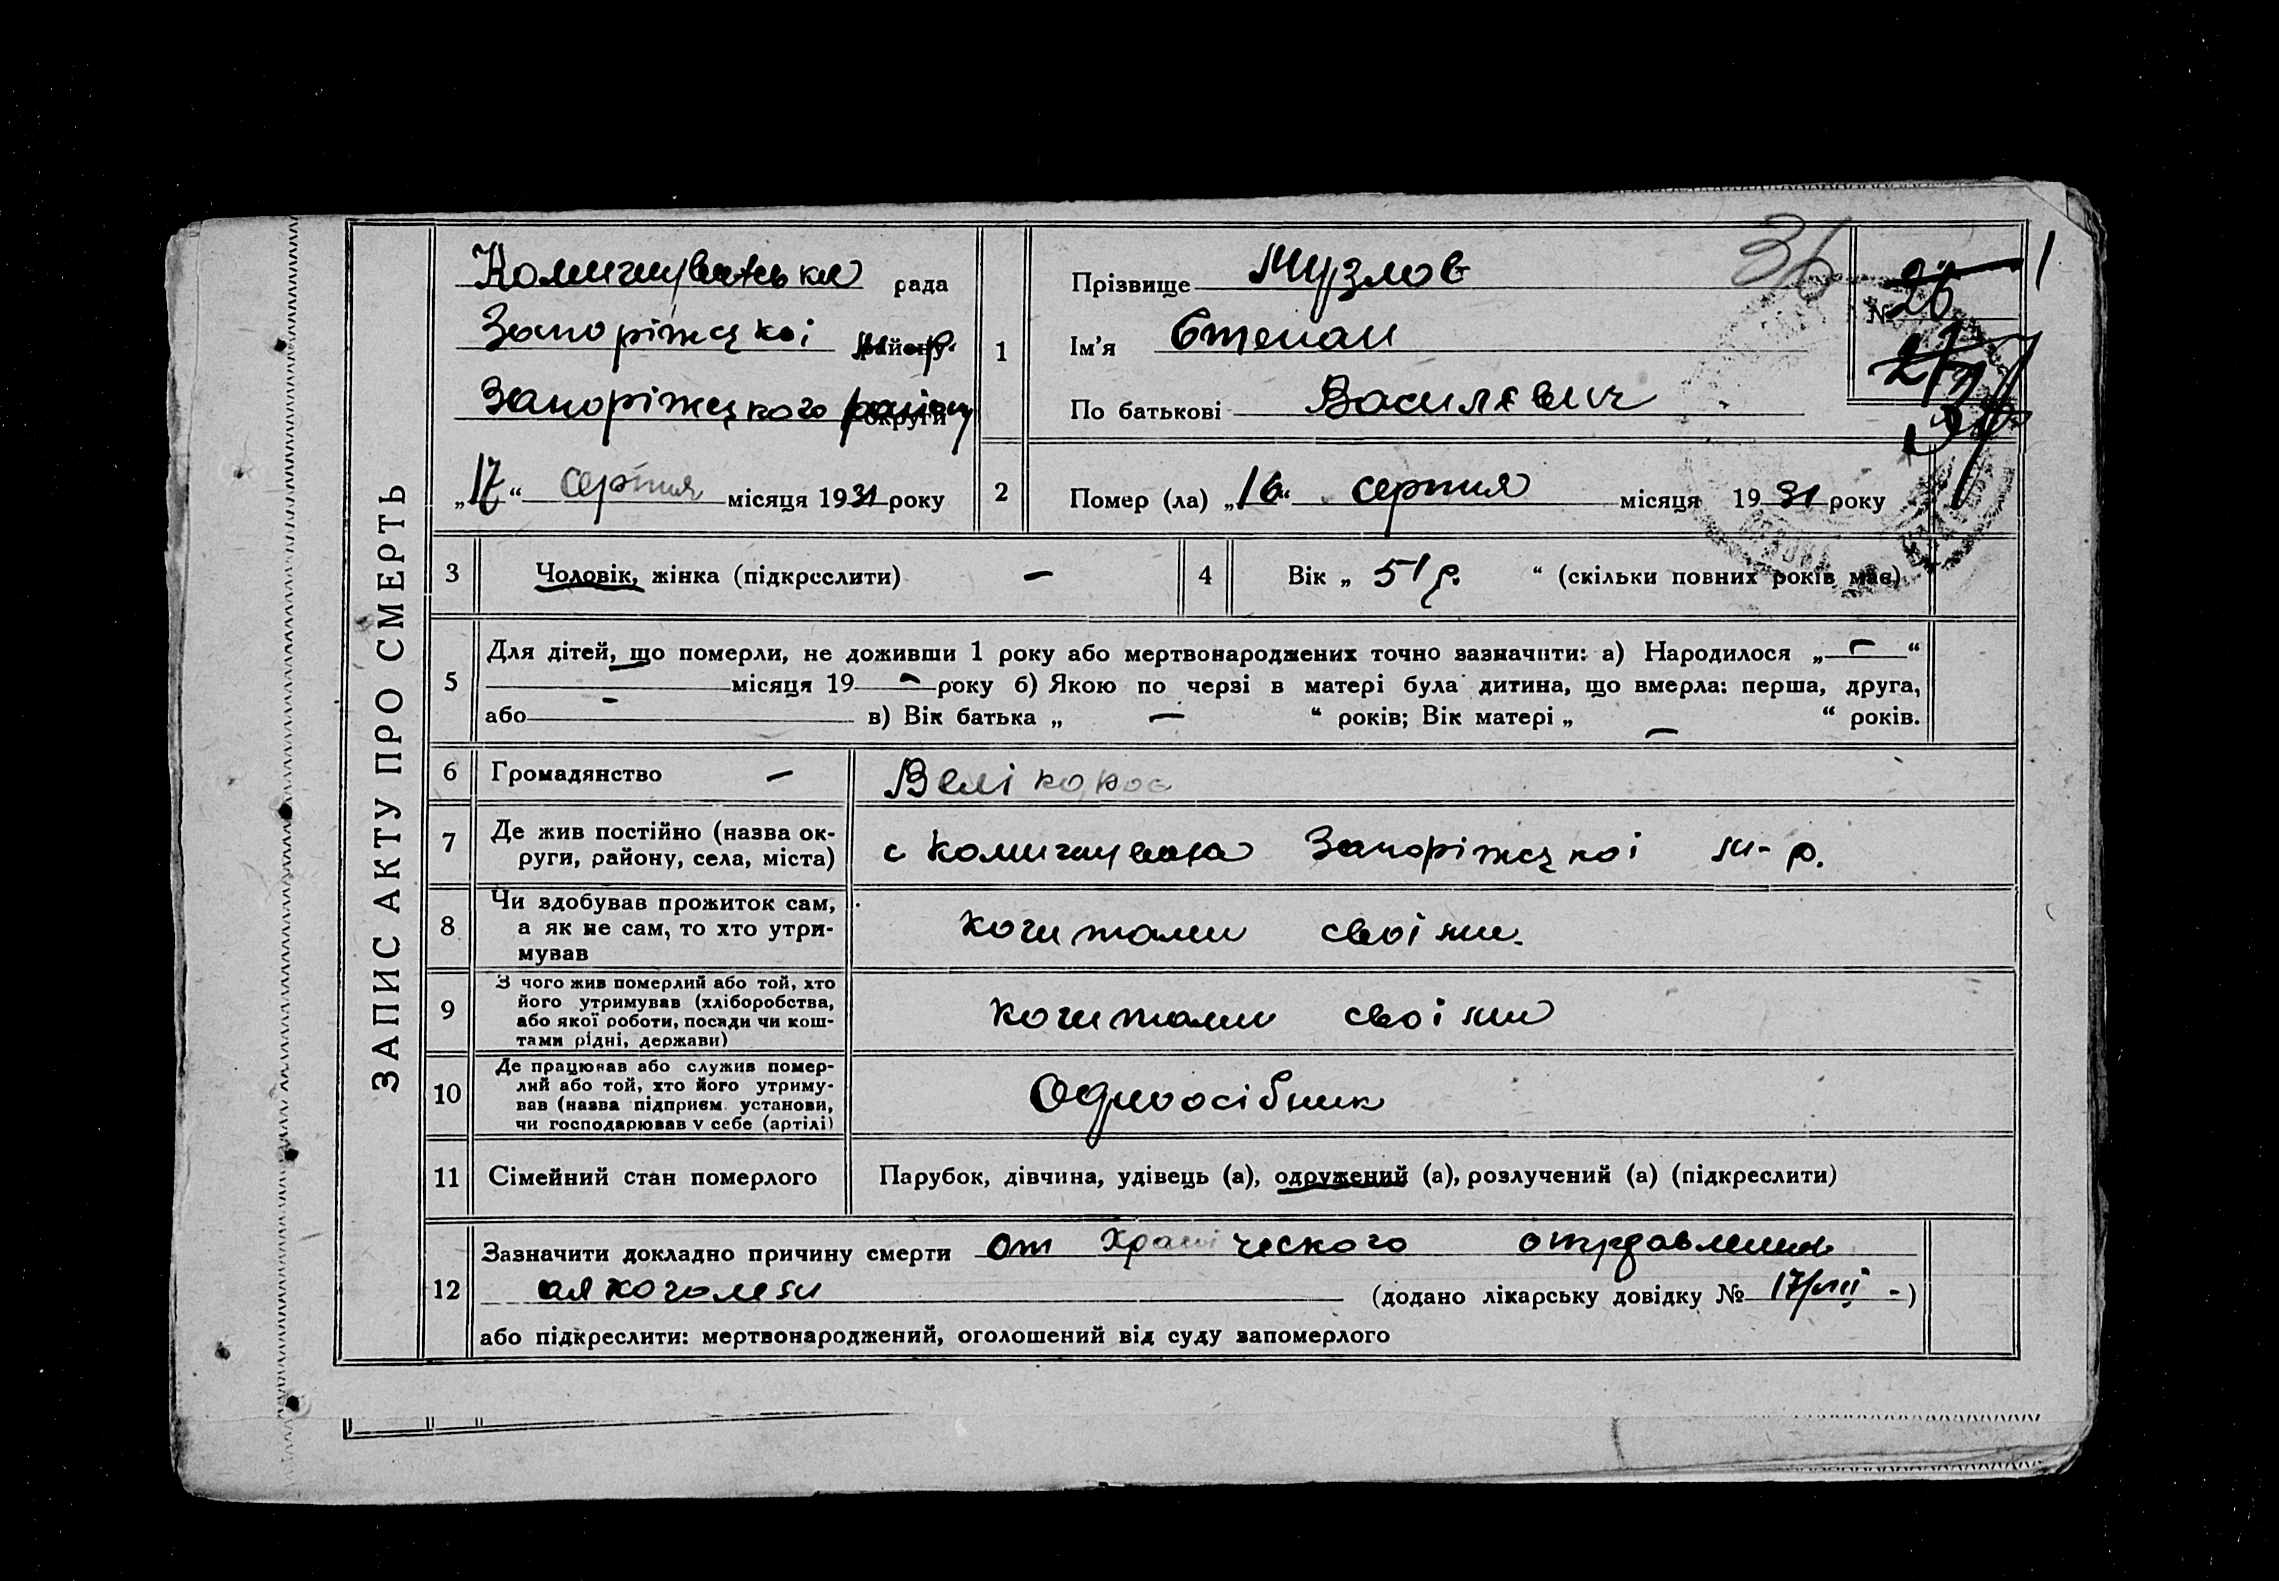 ЗАПИС АКТУ ПРО СМЕРТЬ
Комишуватська рада
Запоріжської м. р. району
Запоріжського району округи
„17“ серпня місяця 1931 року
1
Прізвище Музлов
Ім'я Степан
По батькові Василєвич
36
№ 26
1
2
Помер (ла) „16“ серпня місяця 1931 року
3
Чоловік, жінка (підкреслити) —
4
Вік „ 51 р. “ (скільки повних років має)
5
Для дітей, що померли, не доживши 1 року або мертвонароджених точно зазначити: а) Народилося „ — “
місяця 19 — року б) Якою по черзі в матері була дитина, що вмерла: перша, друга,
або — в) Вік батька „ — “ років; Вік матері „ — “ років.
6
Громадянство —
Велікорос
7
Де жив постійно (назва ок-
руги, району, села, міста)
с Комишуваха Запоріжської м-р.
8
Чи здобував прожиток сам,
а як не сам, то хто утри-
мував
коштами своїми.
9
З чого жив померлий або той, хто
його утримував (хліборобства,
або якої роботи, посади чи кош-
тами рідні, держави)
коштами своїми
10
Де працював або служив помер-
лий або той, хто його утриму-
вав (назва підприєм. установи,
чи господарював у себе (артілі)
Одноосібник
11
Сімейний стан померлого
Парубок, дівчина, удівець (а), одружений (а), розлучений (а) (підкреслити)
12
Зазначити докладно причину смерти от хранического отравления
алкоголем (додано лікарську довідку № 17/VIII -)
або підкреслити: мертвонароджений, оголошений від суду запомерлого